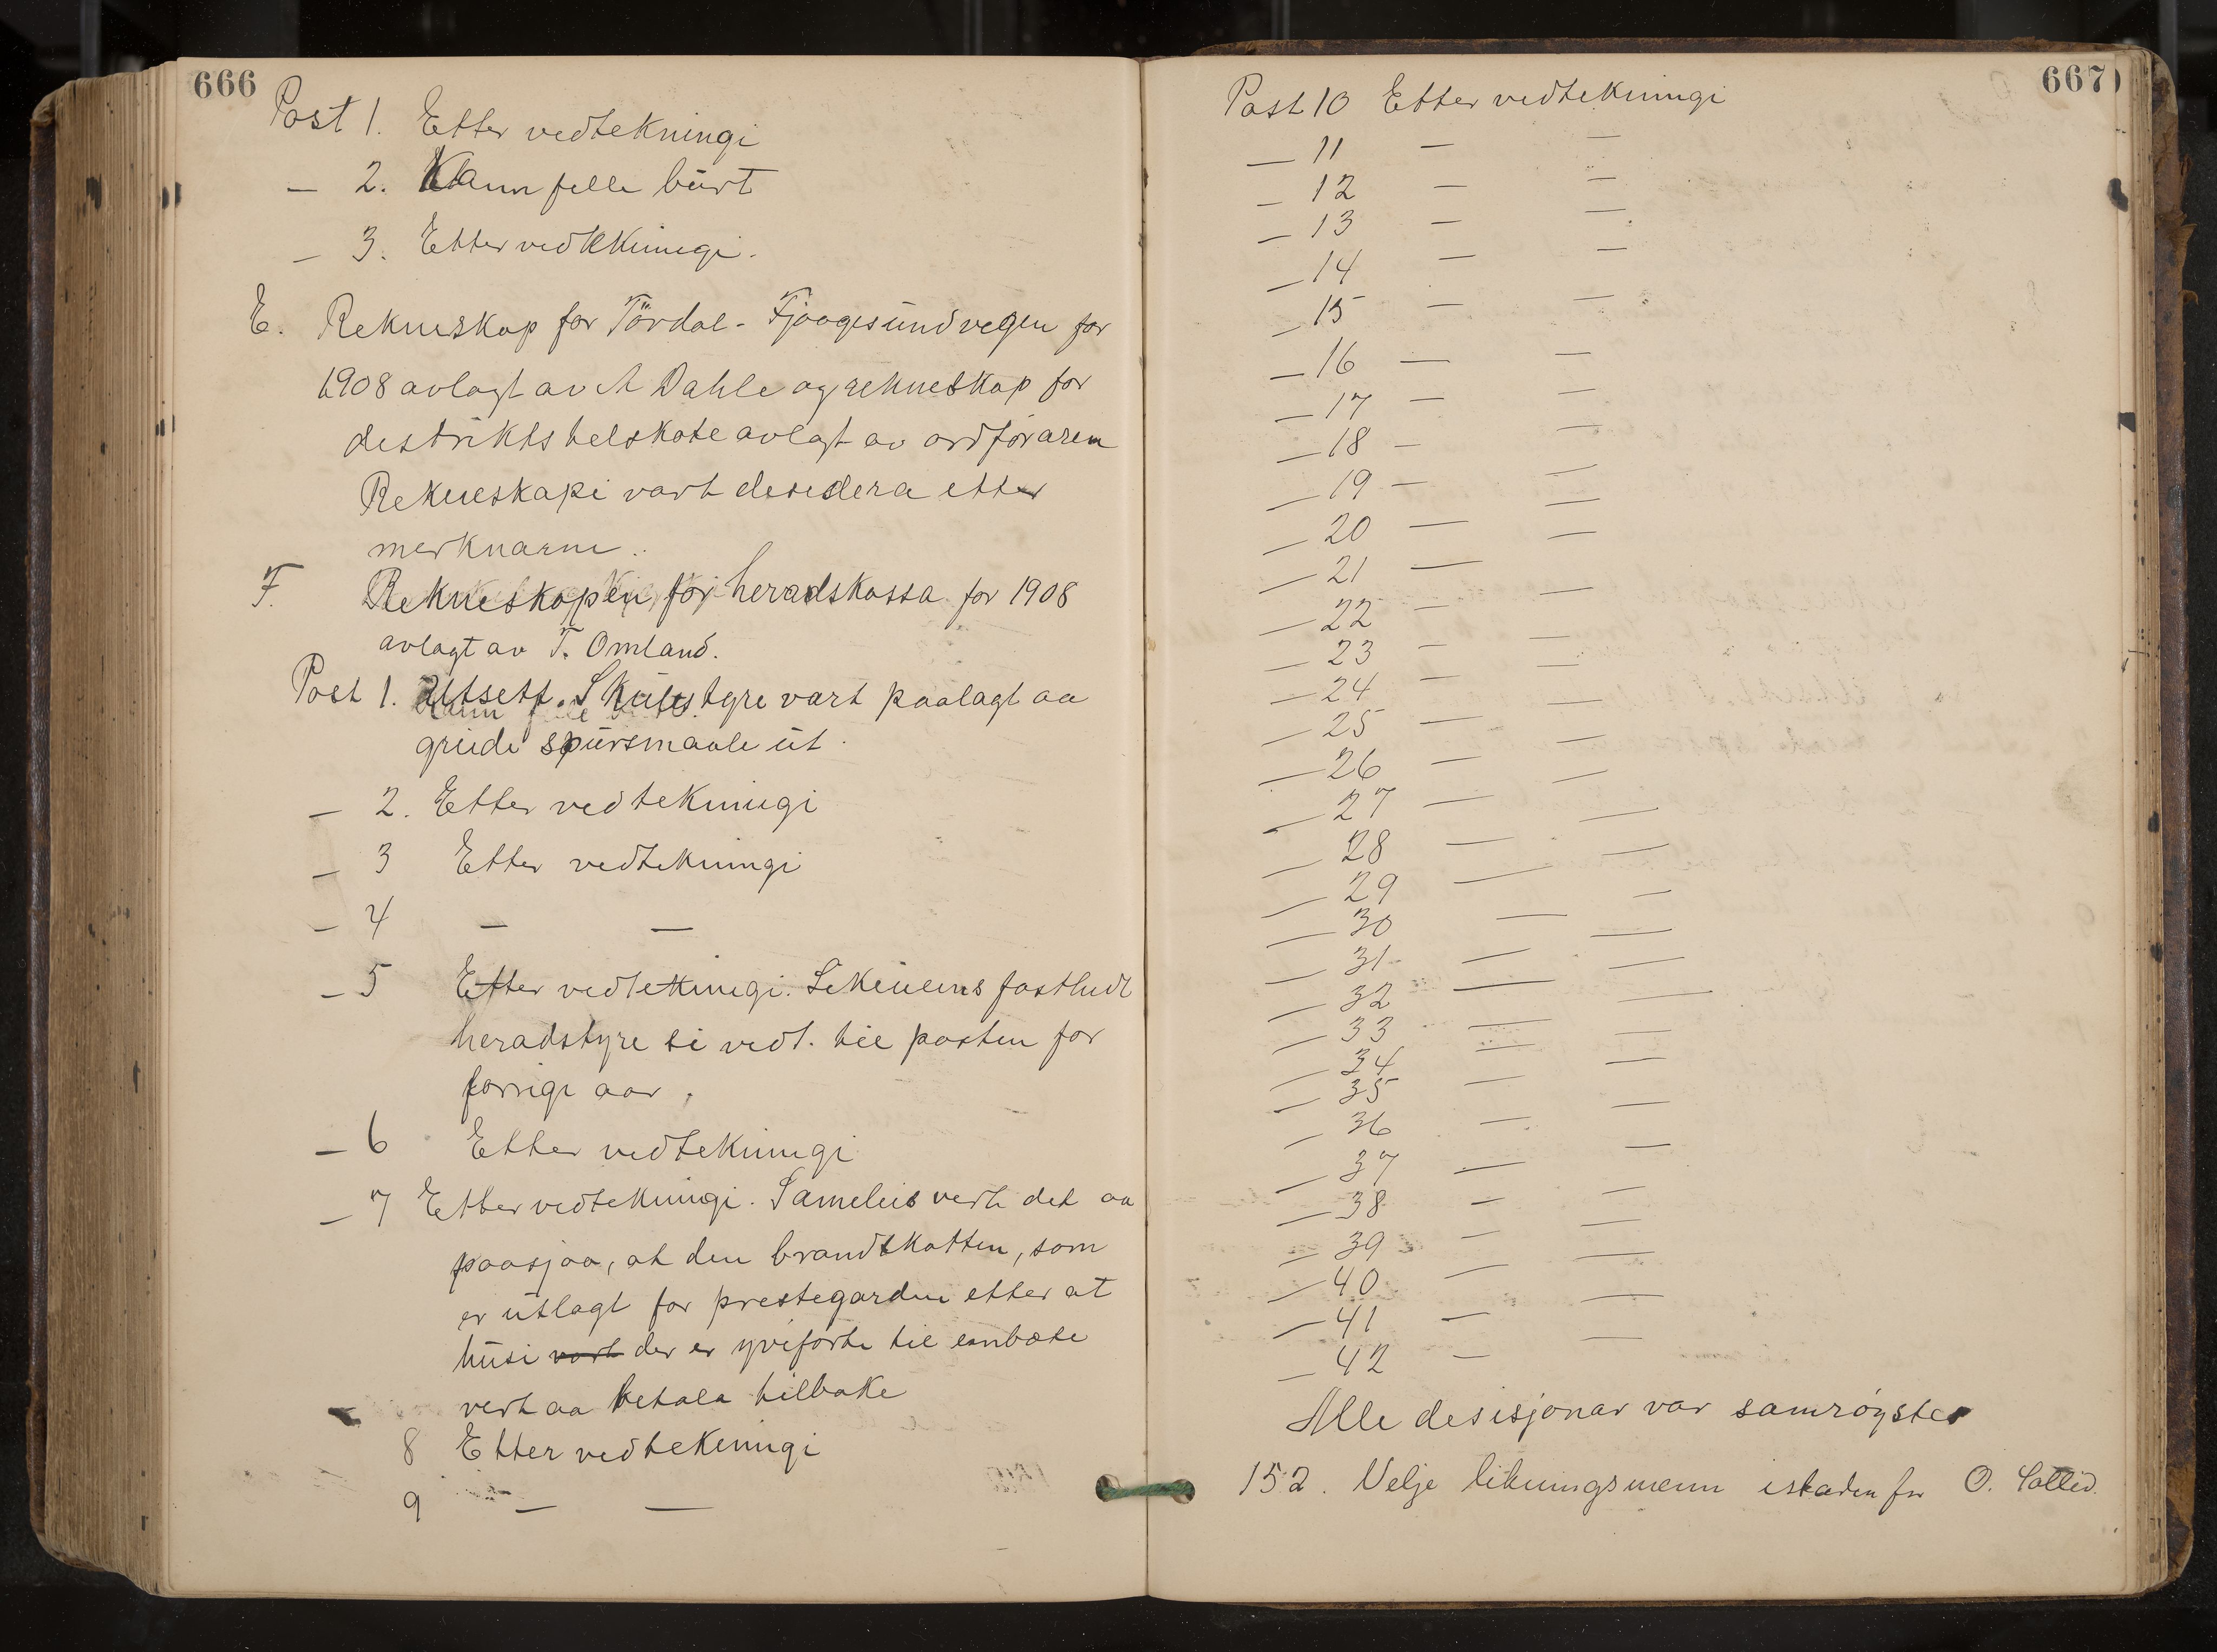 666
Post 1. Etter vedtekningi
— 2. Kann felle burt
— 3. Etter vedtekningi.
E. Rekneskap for Tördal - Fjaagesundvegen for
1908 avlagt av A Dahle og rekneskap for
destrikts telskote avlagt av ordföraren
Rekneskapi vart desidera etter
merknarne.
F. Rekneskapen for heradskassa for 1908
avlagt av T. Omland.
Post 1. Utsett. Skulestyre vart paalagt aa
greide spursmaale ut.
— 2. Etter vedtekningi
— 3 Etter vedtekningi
— 4 — —
— 5 Etter vedtekningi. Likeeins fastheldt
heradstyre si vedt. til posten for
forrige aar.
— 6 Etter vedtekningi
— 7 Etter vedtekningi. Sameleis verte det aa
paasjaa, at den brandskatten, som
er utlagt for prestegarden etter at
husi vart der er yviförte til embæte
vert aa betala tilbake
— 8 Etter vedtekningi
9 — —
667
Post 10 Etter vedtekningi
— 11 — —
— 12 — —
— 13 — —
— 14 — —
— 15 — —
— 16 — —
— 17 — —
— 18 — —
— 19 — —
— 20 — —
— 21 — —
— 22 — —
— 23 — —
— 24 — —
— 25 — —
— 26 — —
— 27 — —
— 28 — —
— 29 — —
— 30 — —
— 31 — —
— 32 — —
— 33 — —
— 34 — —
— 35 — —
— 36 — —
— 37 — —
— 38 — —
— 39 — —
— 40 — —
— 41 — —
— 42 — —
Alle desisjonar var samröystes
152. Velje likningsmenn istaden for O.